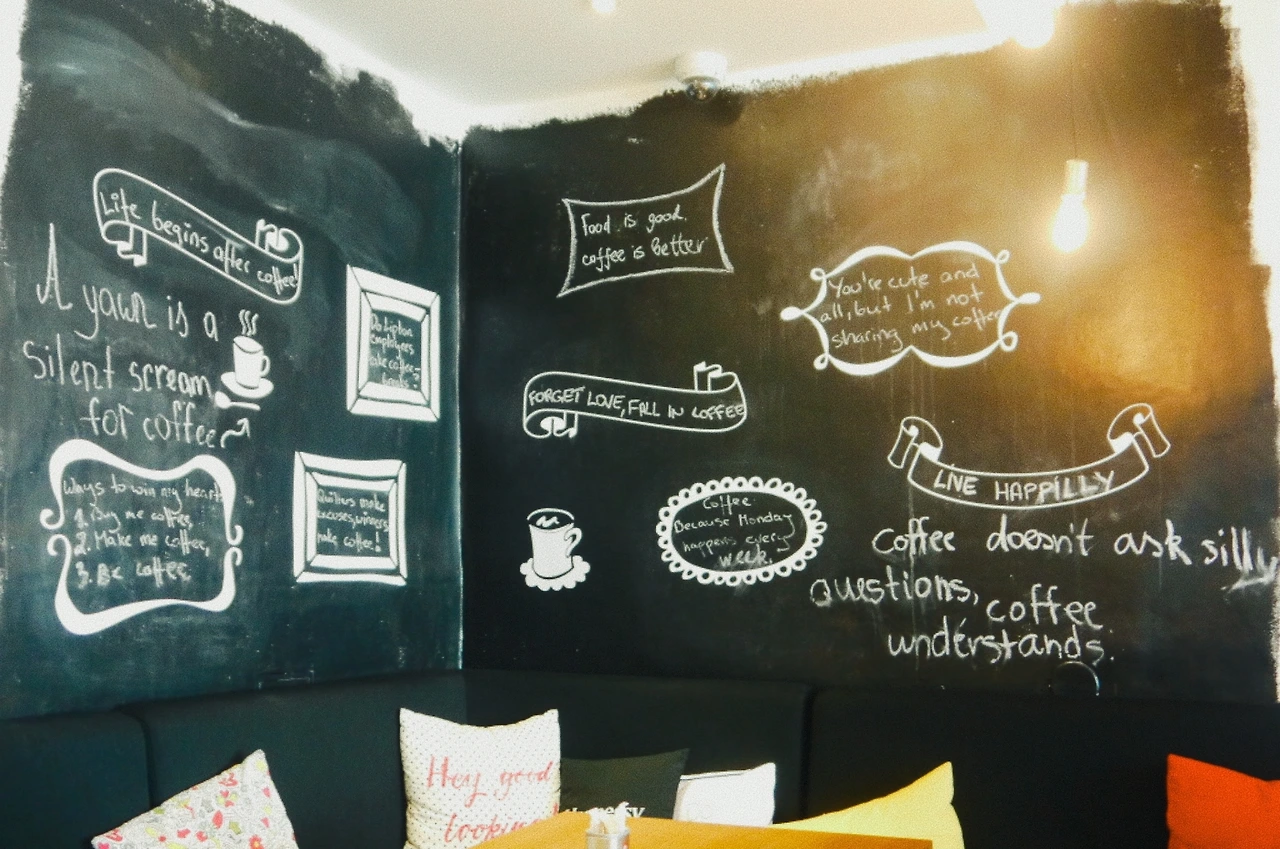 Life begins after coffee!
A yawn is a
silent scream
for coffee
Do
employees
make coffee
Ways to win my heart:
1. Buy me coffee,
2. Make me coffee,
3. Be coffee.
Quitters make
excuses, winners
make coffee!
Food is good.
coffee is Better
FORGET LOVE, FALL IN COFFEE
Coffee
Because Monday
happens every
week.
You're cute and
all, but I'm not
sharing my coffee
LIVE HAPPILLY
Coffee doesn't ask silly
questions, coffee
understands.
Hey good